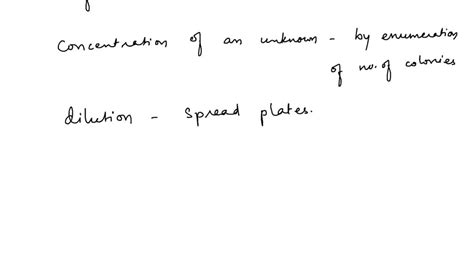 concentration of an unknown - by enumeration
of no. of colonies
dilution - spread plates.